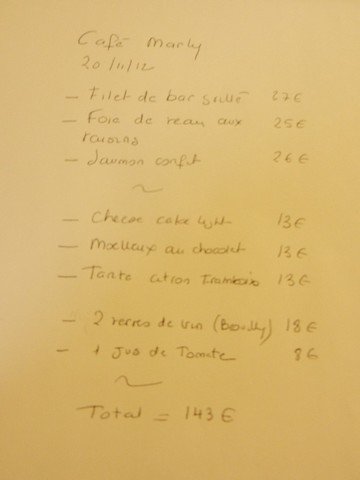 Café Marly
20/11/12
- Filet de bar grillé 27€
- Foie de veau aux 25€
raisins
- Saumon confit 26€
~
- Cheese cake light 13€
- Moelleux au chocolat 13€
- Tarte citron Framboise 13€
- 2 verres de vin (Brouilly) 18€
- 1 Jus de Tomate 8€
~
Total = 143€